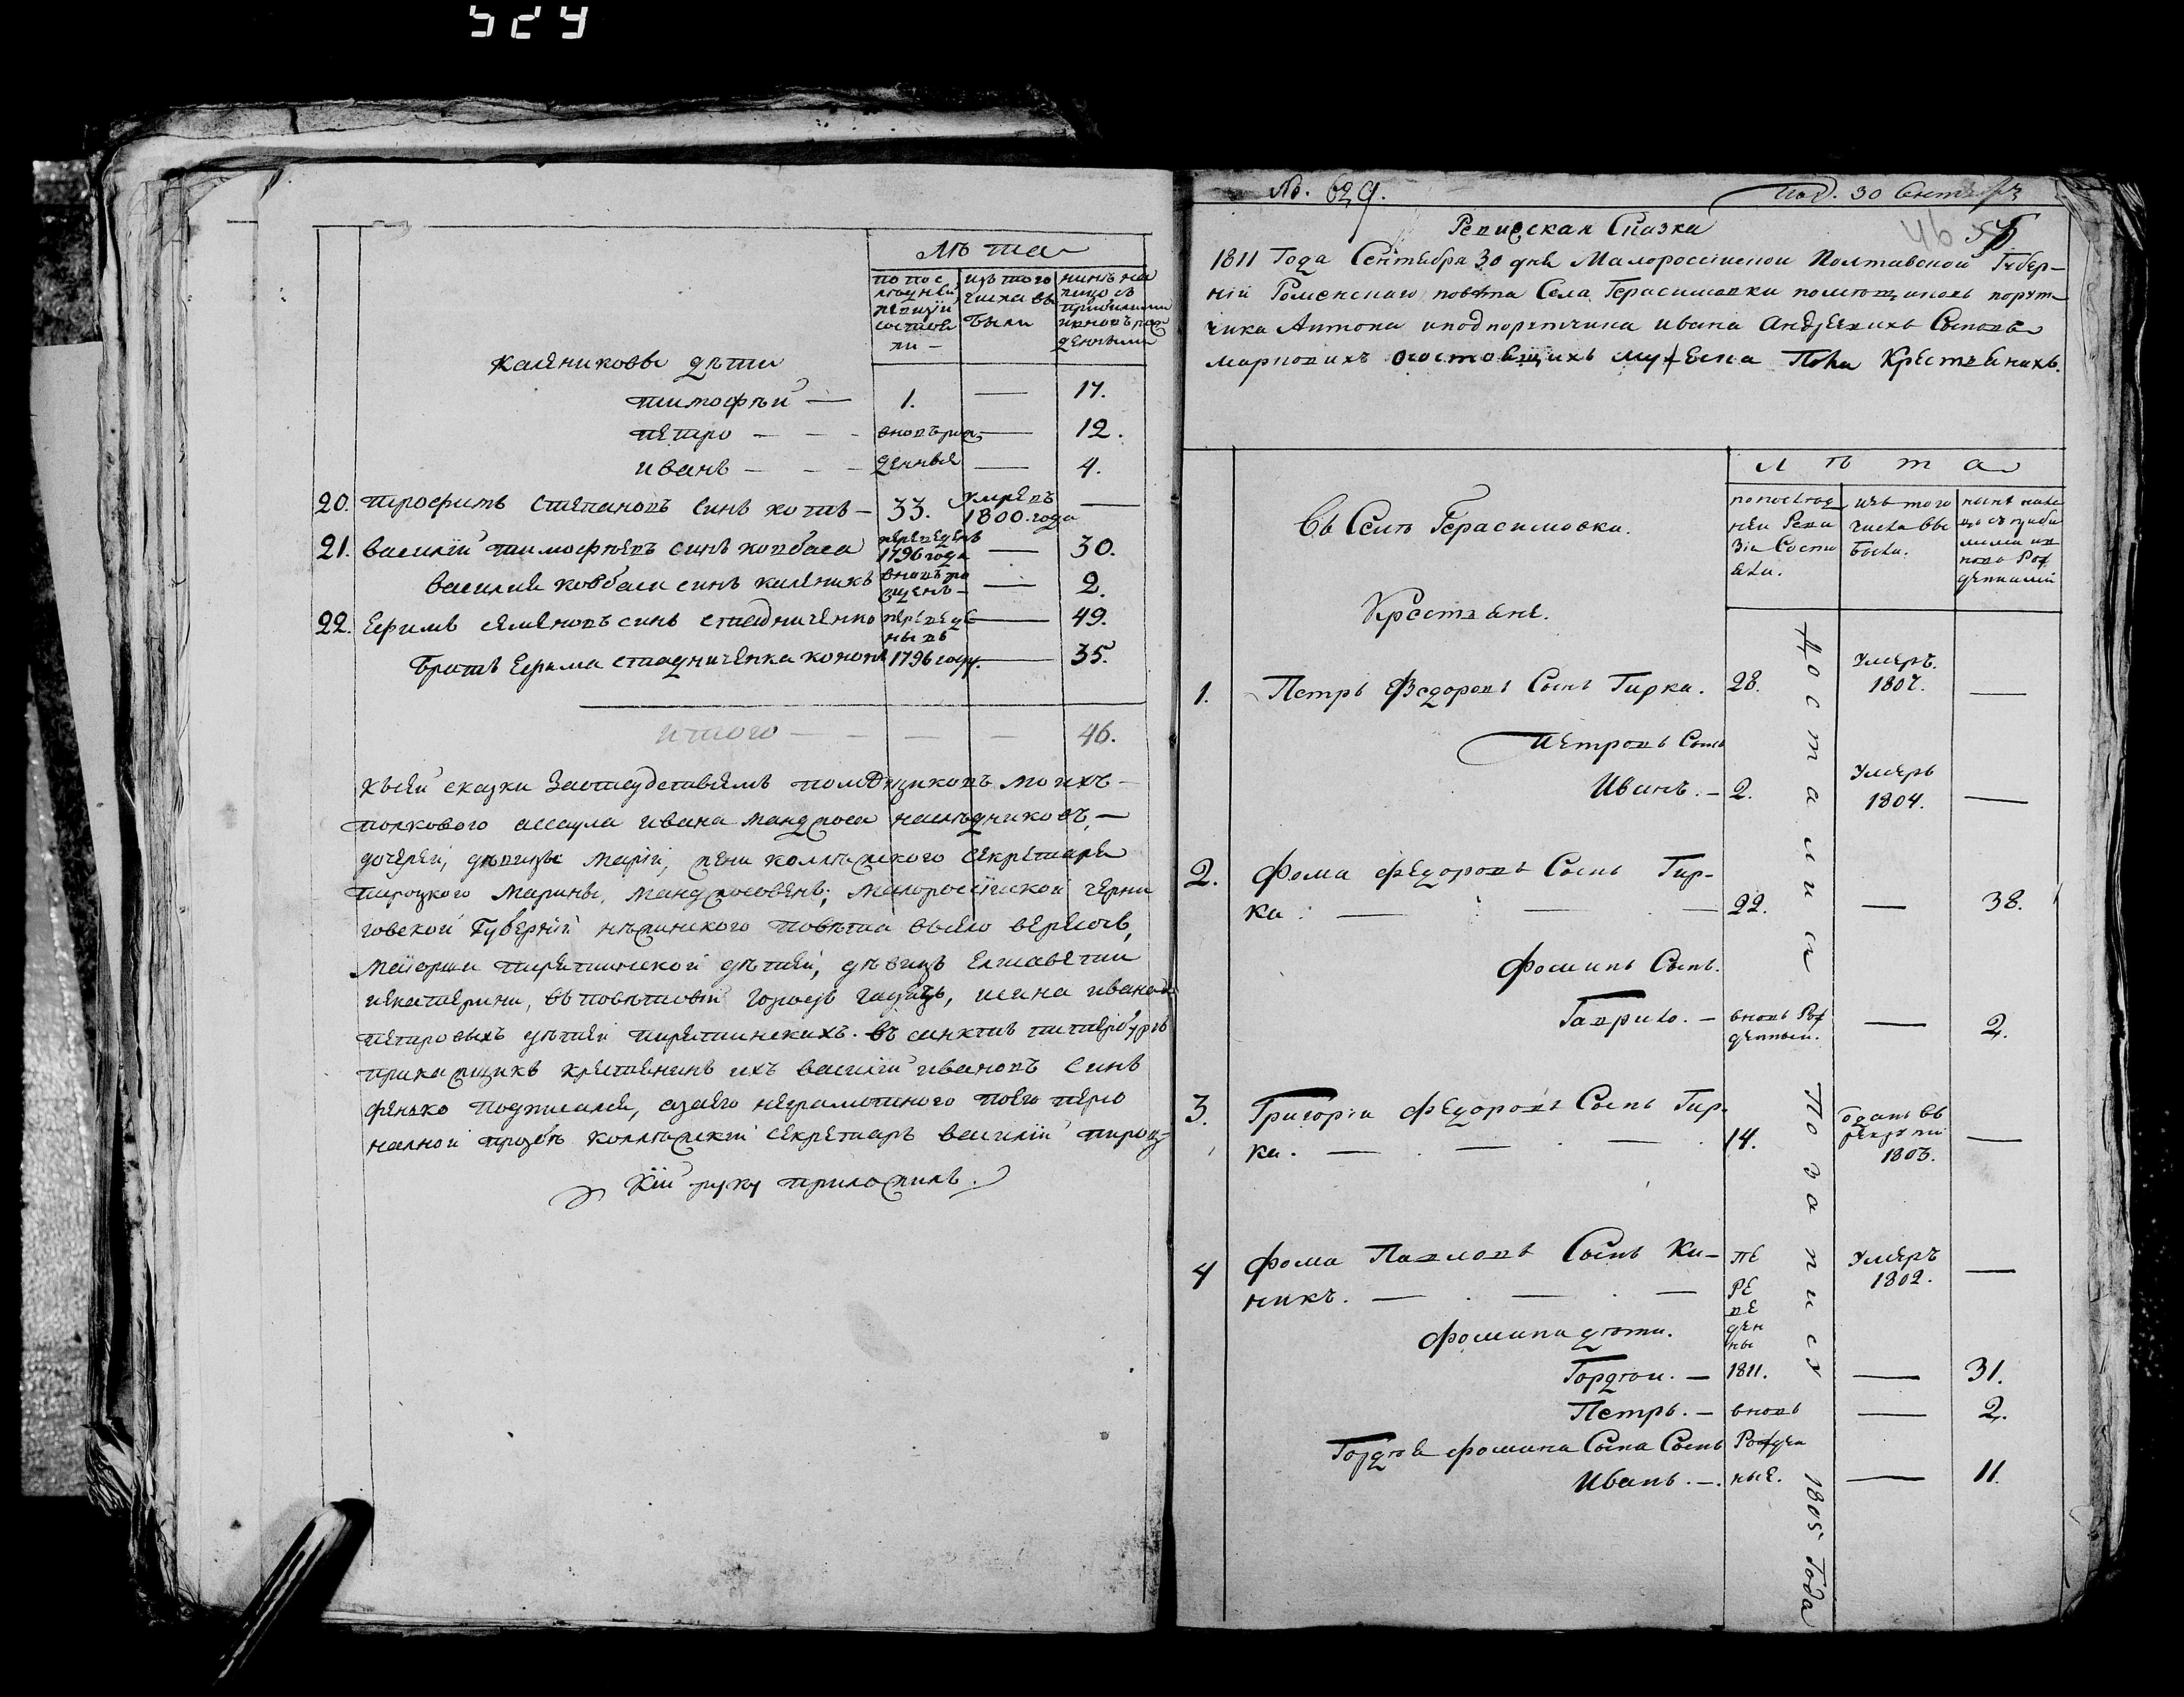 529
Лѣта
по пос
лѣдней
ревизіи
состоя
ли –
изъ того
числа вы
были
нинѣ на
лицо съ
прибилими
и вновь рож
денными
Каленикови дѣти
тимофѣй — 1. — 17.
петро — вновь рож — 12.
иванъ — денные — 4.
20. трофимъ степановъ синъ котъ — 33. умреъ 1800. года —
21. василій тимофѣевъ синъ ковбаса переведенъ 1796 года — 30.
василия ковбаси синъ каленикъ вновь рожденъ — 2.
22. Ефимъ семеновъ синъ стадниченко переведе — 49.
ны въ
братъ Ефима стадниченка кононъ 1796 году. — 35.
итого — — — 46.
къ сей сказки за отсудствиемъ помѣщиковъ моихъ
полкового ассаула ивана мандроса наслѣдниковъ, —
дочерей, дѣвицы маріи, жени коллѣжского секретаря
тироцкого марины, мандросовенъ; малоросійской черни
говской губерніи нѣжинского повѣта въ село
маіорши пирятинской дѣтей, дѣвицъ елисавети
и екатерини, въ повѣтовій городъ гадячъ, и сина ивана
петровыхъ дѣтей пирятинскихъ. въ санктъ питербургъ
прикащикъ крестянинъ ихъ василій ивановъ синъ
фенько подписался, а за его неграмотного по его персо
налной прозбѣ коллѣжскій секретарь василій тироц
кій руку приложилъ.
№. 629. Под. 30 Сентября
46
Ревиская Сказка
1811 Года Сентября 30 дня Малоросійской Полтавской Губер—
ніи Роменского повѣта Села Герасимовки помѣщиковъ порут
чика Антона и подпорутчика ивана Андреевихъ Сыновъ
марковихъ о состоящихъ мужеска Пола Крестьянахъ.
Л ѣ т а
По последней Реви зіи Состояли.
изъ того числа вы были.
нынѣ на лицо съ прибилими и вновь Рожденними
Въ Селѣ Герасимовки.
Крестьяне.
1. Петръ Федоровъ Сынъ Гирка. 28. Умеръ. 1807. —
Петровъ Сынъ
Иванъ. — 2. Умеръ 1804. —
2. Фома Федоровъ Сынъ Гир—
ка. — — — 22. — 38.
Фоминъ Сынъ.
Гаврило. — вновь Рож денный. — 2.
3. Григорій Федоровъ Сынъ Гир
ка. — — — 14. Одданъ въ рекруты 1803. —
4 Фома Павловъ Сынъ Ки—
никъ. — — — пе ре ве ден ны Умеръ 1802. —
Фомини дѣти.
Гордѣй. — 1811. — 31.
Петръ. — вновь — 2.
Гордѣя Фомина Сына Сынъ Рожден
Иванъ. — ные. — 11.
Состаяли По Запису 1805 Года